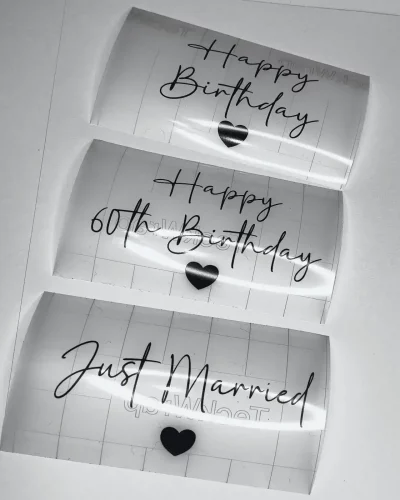 Happy
Birthday
Happy
60th Birthday
Just Married
TeckWrap